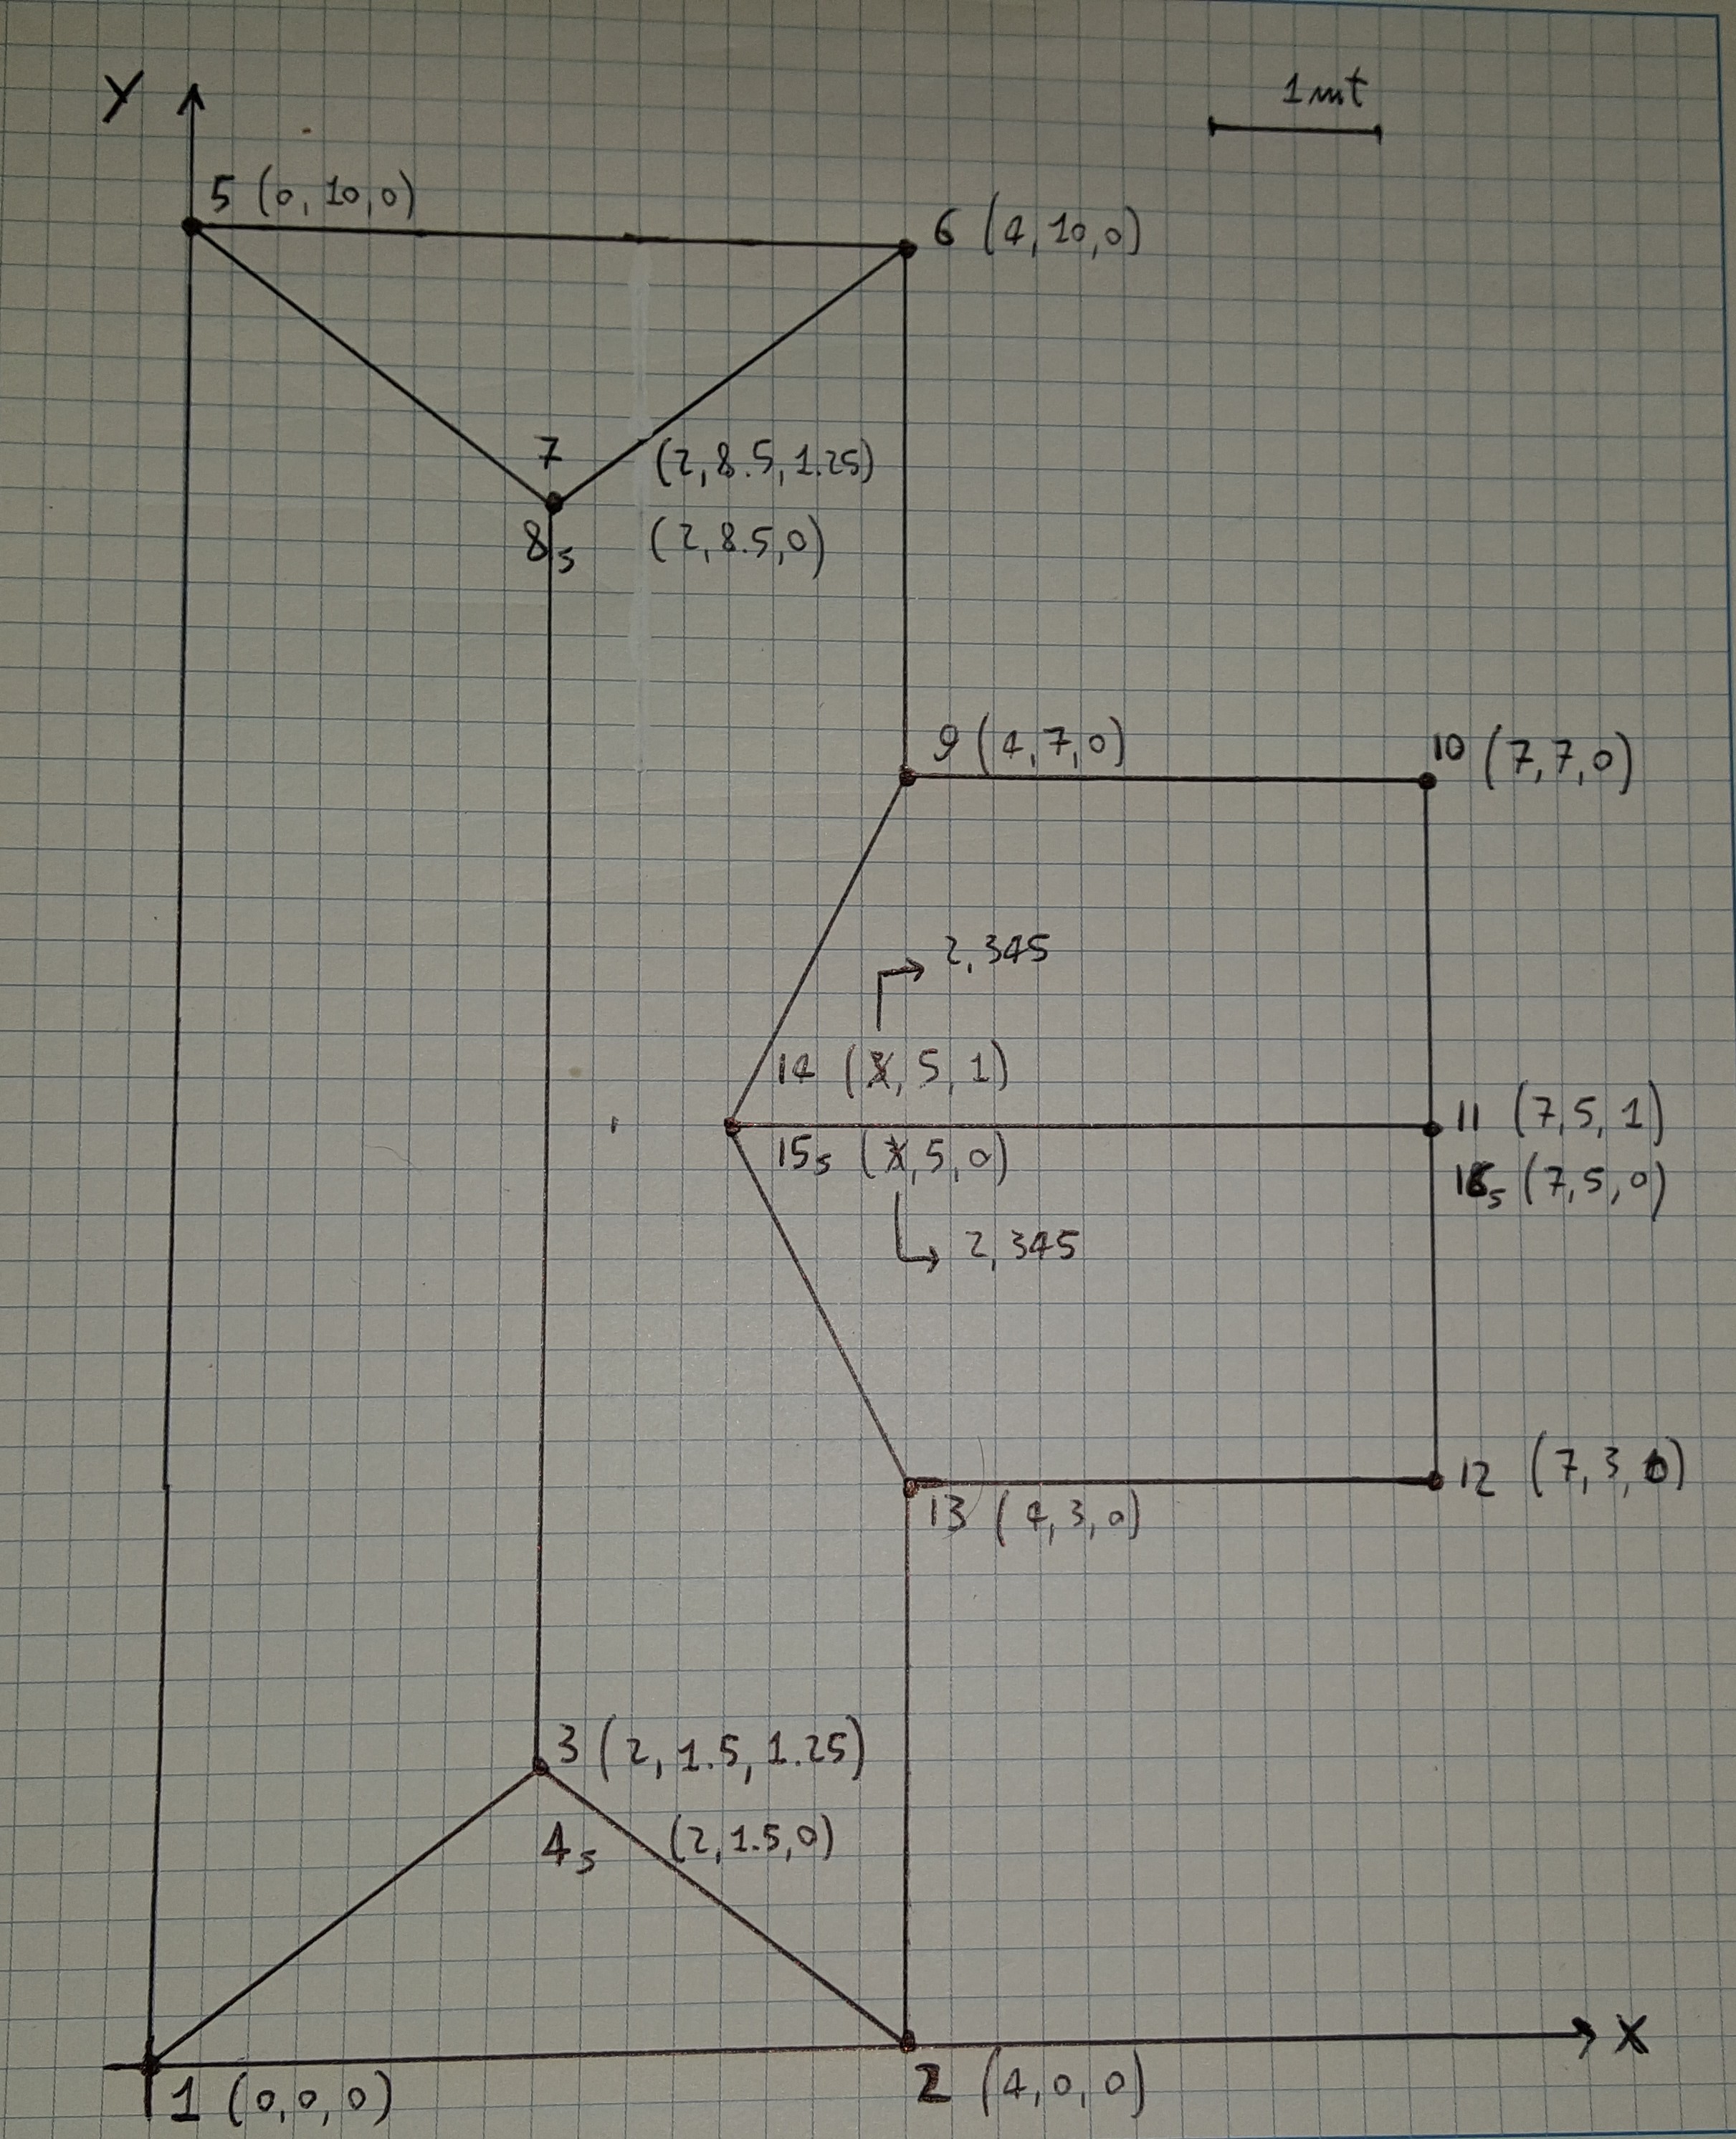 Y
1 mt
5 (0, 10, 0)
6 (4, 10, 0)
7 (2, 8.5, 1.25)
8s (2, 8.5, 0)
9 (4, 7, 0)
10 (7, 7, 0)
2,345
14 (x, 5, 1)
11 (7, 5, 1)
15s (x, 5, 0)
16s (7, 5, 0)
2,345
12 (7, 3, 0)
13 (4, 3, 0)
3 (2, 1.5, 1.25)
4s (2, 1.5, 0)
X
1 (0, 0, 0)
2 (4, 0, 0)